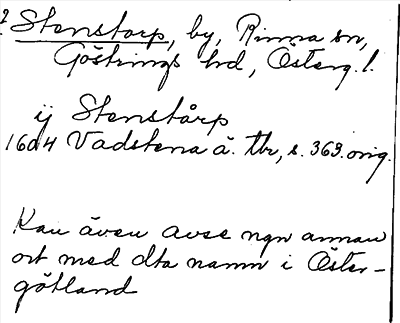 ? Stenstorp, by, Rinna sn,
Göstrings hd, Österg. l.
ij Stenstårp
1604 Vadstena ä. tbr, s. 363. orig.
Kan även avse ngn annan
ort med dta namn i Öster-
götland